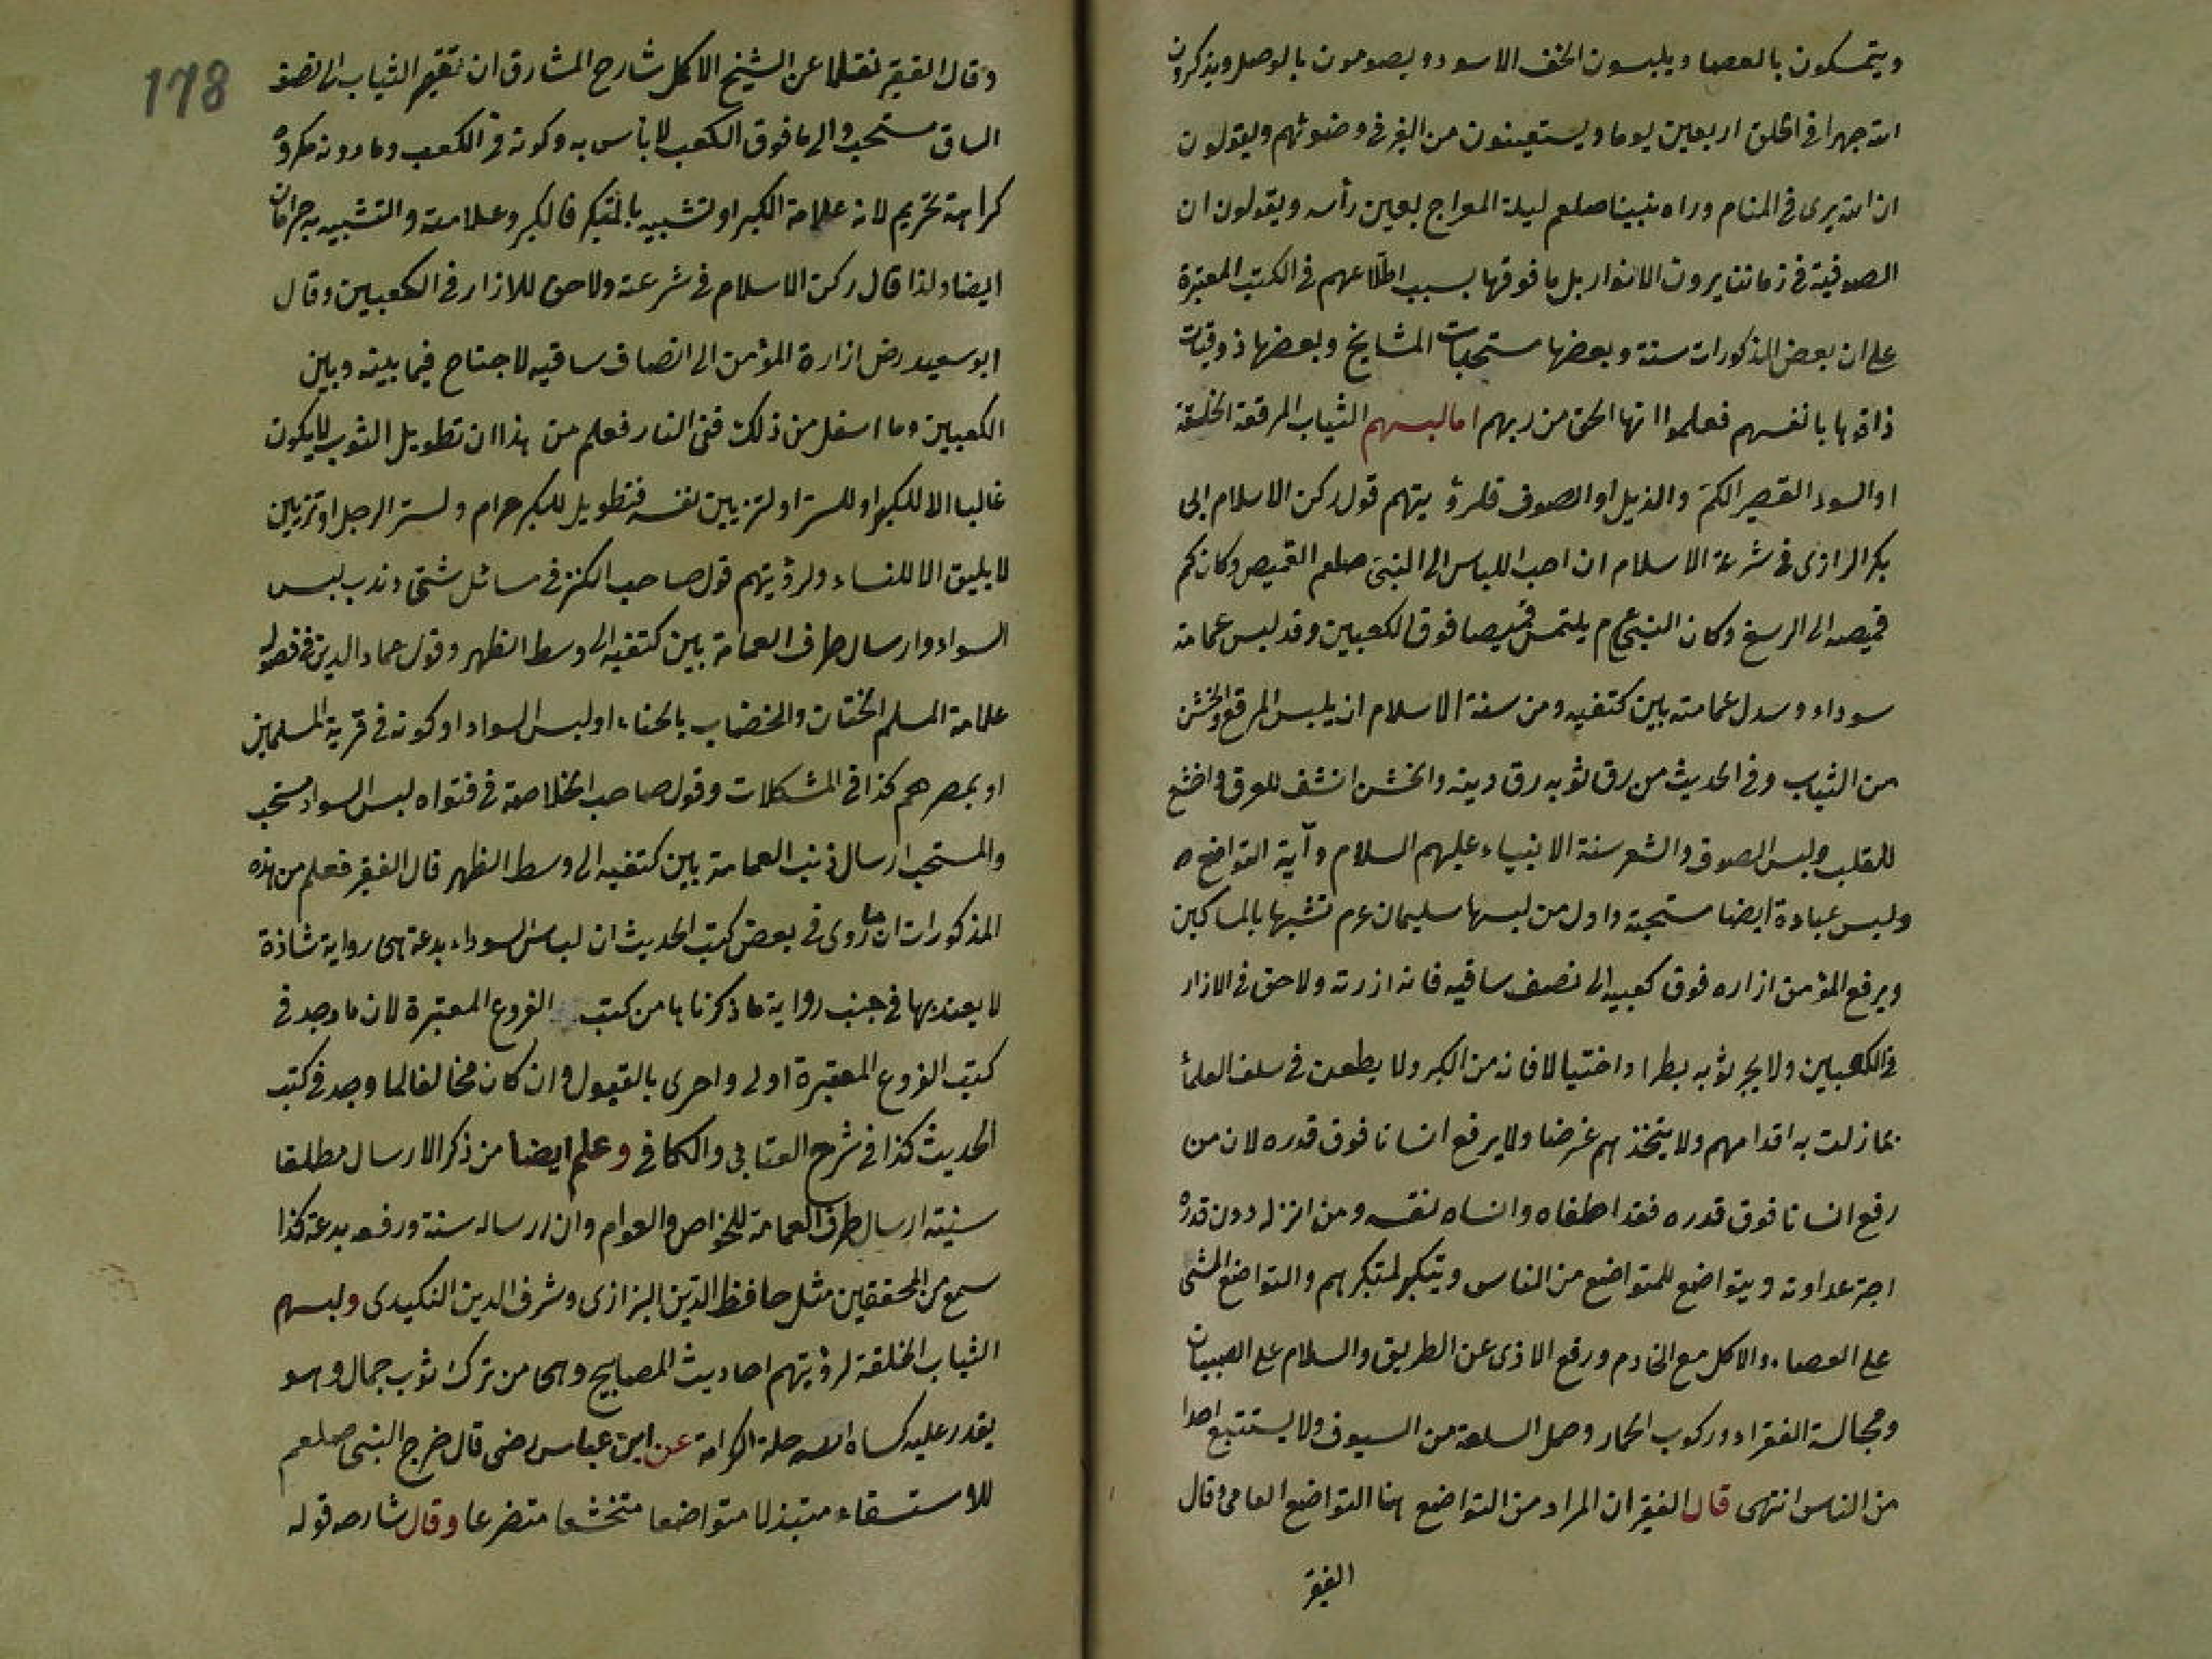 ويتمسكون بالعصا ويلبسون الخف الاسود ويصومون بالوصل ويذكرون
الله جهرا في الخلق اربعين يوما ويستعينون من الغير في وضوئهم ويقولون
ان الله يرى في المنام وراه نبينا صلعم ليلة المعراج بعين رأسه ويقولون ان
الصوفية في زماننا يرون الانوار بل ما فوقها بسبب اطلاعهم في الكتب المعتبرة
على ان بعض المذكورات سنة وبعضها مستحبات المشايخ وبعضها ذوقيات
ذاقوها بانفسهم فعلموا انها الحق من ربهم اما لبسهم الثياب المرقعة الخلقة
او السود القصير الكم والذيل او الصوف فلرؤيتهم قول ركن الاسلام ابى
بكر الرازى في شرعة الاسلام ان احب اللباس الى النبى صلعم القميص وكان كم
قميصه الى الرسغ وكان النبى عم يلتمس قميصا فوق الكعبين وقد لبس عمامة
سوداء وسدل عمامته بين كتفيه ومن سنة الاسلام ان يلبس المرقع والخشن
من الثياب وفي الحديث من رق ثوبه رق دينه والخشن انشف للعرق واخشع
للقلب ولبس الصوف والشعر سنة الانبياء عليهم السلام وآية التواضع
ولبس عباءة ايضا مستحبة واول من لبسها سليمان عم تشبها بالمساكين
ويرفع المؤمن ازاره فوق كعبيه الى نصف ساقيه فانه ازرته ولا حق في الازار
في الكعبين ولا يجر ثوبه بطرا واختيالا فانه من الكبر ولا يطعن في سلف العلماء
بما زلت به اقدامهم ولا يتخذهم غرضا ولا يرفع انسانا فوق قدره لان من
رفع انسانا فوق قدره فقد اطغاه وانساه نفسه ومن انزله دون قدره
اجتر عداوته ويتواضع للمتواضع من الناس ويتكبر لمتكبرهم والتواضع المشى
على العصاء والاكل مع الخادم ورفع الاذى عن الطريق والسلام على الصبيان
ومجالسة الفقراء وركوب الحمار وحمل السلعة من السوق ولا يستتبع احدا
من الناس انتهى قال الفقير ان المراد من التواضع هنا التواضع العامى وقال
الفقير
178
وقال الفقير نقلا عن الشيخ الاكمل شارح المشارق ان تقصير الثياب الى نصف
الساق مستحب والى ما فوق الكعب لا بأس به وكونه في الكعب وما دونه مكروه
كراهة تحريم لانه علامة الكبر او تشبيه بالمتكبر فالكبر وعلامته والتشبيه به حرامان
ايضا ولذا قال ركن الاسلام في شرعته ولا حق للازار في الكعبين وقال
ابو سعيد رض ازارة المؤمن الى انصاف ساقيه لا جناح فيما بينه وبين
الكعبين وما اسفل من ذلك ففى النار فعلم من هذا ان تطويل الثوب لا يكون
غالبا الا للكبر او للستر او لتزيين نفسه فتطويل للكبر حرام ولستر الرجل او تزيين
لا يليق الا للنساء ولرؤيتهم قول صاحب الكنز في مسائل شتى وندب لبس
السواد وارسال طرف العمامة بين كتفيه الى وسط الظهر وقول عماد الدين في فصوله
علامة المسلم الختان والخضاب بالحناء او لبس السواد او كونه في قرية المسلمين
او بمصرهم كذا في المشكلات وقول صاحب الخلاصة في فتواه لبس السواد مستحب
والمستحب ارسال ذنب العمامة بين كتفيه الى وسط الظهر قال الفقير فعلم من هذه
المذكورات ان ما روى في بعض كتب الحديث ان لباس السوداء بدعة هى رواية شاذة
لا يعتد بها في جنب رواية ما ذكرناها من كتب الفروع المعتبرة لان ما وجد في
كتب الفروع المعتبرة اولى واحرى بالقبول وان كان مخالفا لما وجد في كتب
الحديث كذا في شرح العتابى والكافي وعلم ايضا من ذكر الارسال مطلقا
سنية ارسال طرف العمامة للخواص والعوام وان ارساله سنة ورفعه بدعة كذا
سمع من المحققين مثل حافظ الدين البزازى وشرف الدين النكيدى ولبسهم
الثياب الخلقة لرؤيتهم احاديث المصابيح وهى من ترك ثوب جمال وهو
يقدر عليه كساه الله حلة الكرامة عن ابن عباس رضى قال خرج النبى صلعم
للاستسقاء متبذلا متواضعا متخشعا متضرعا وقال شارحه قوله